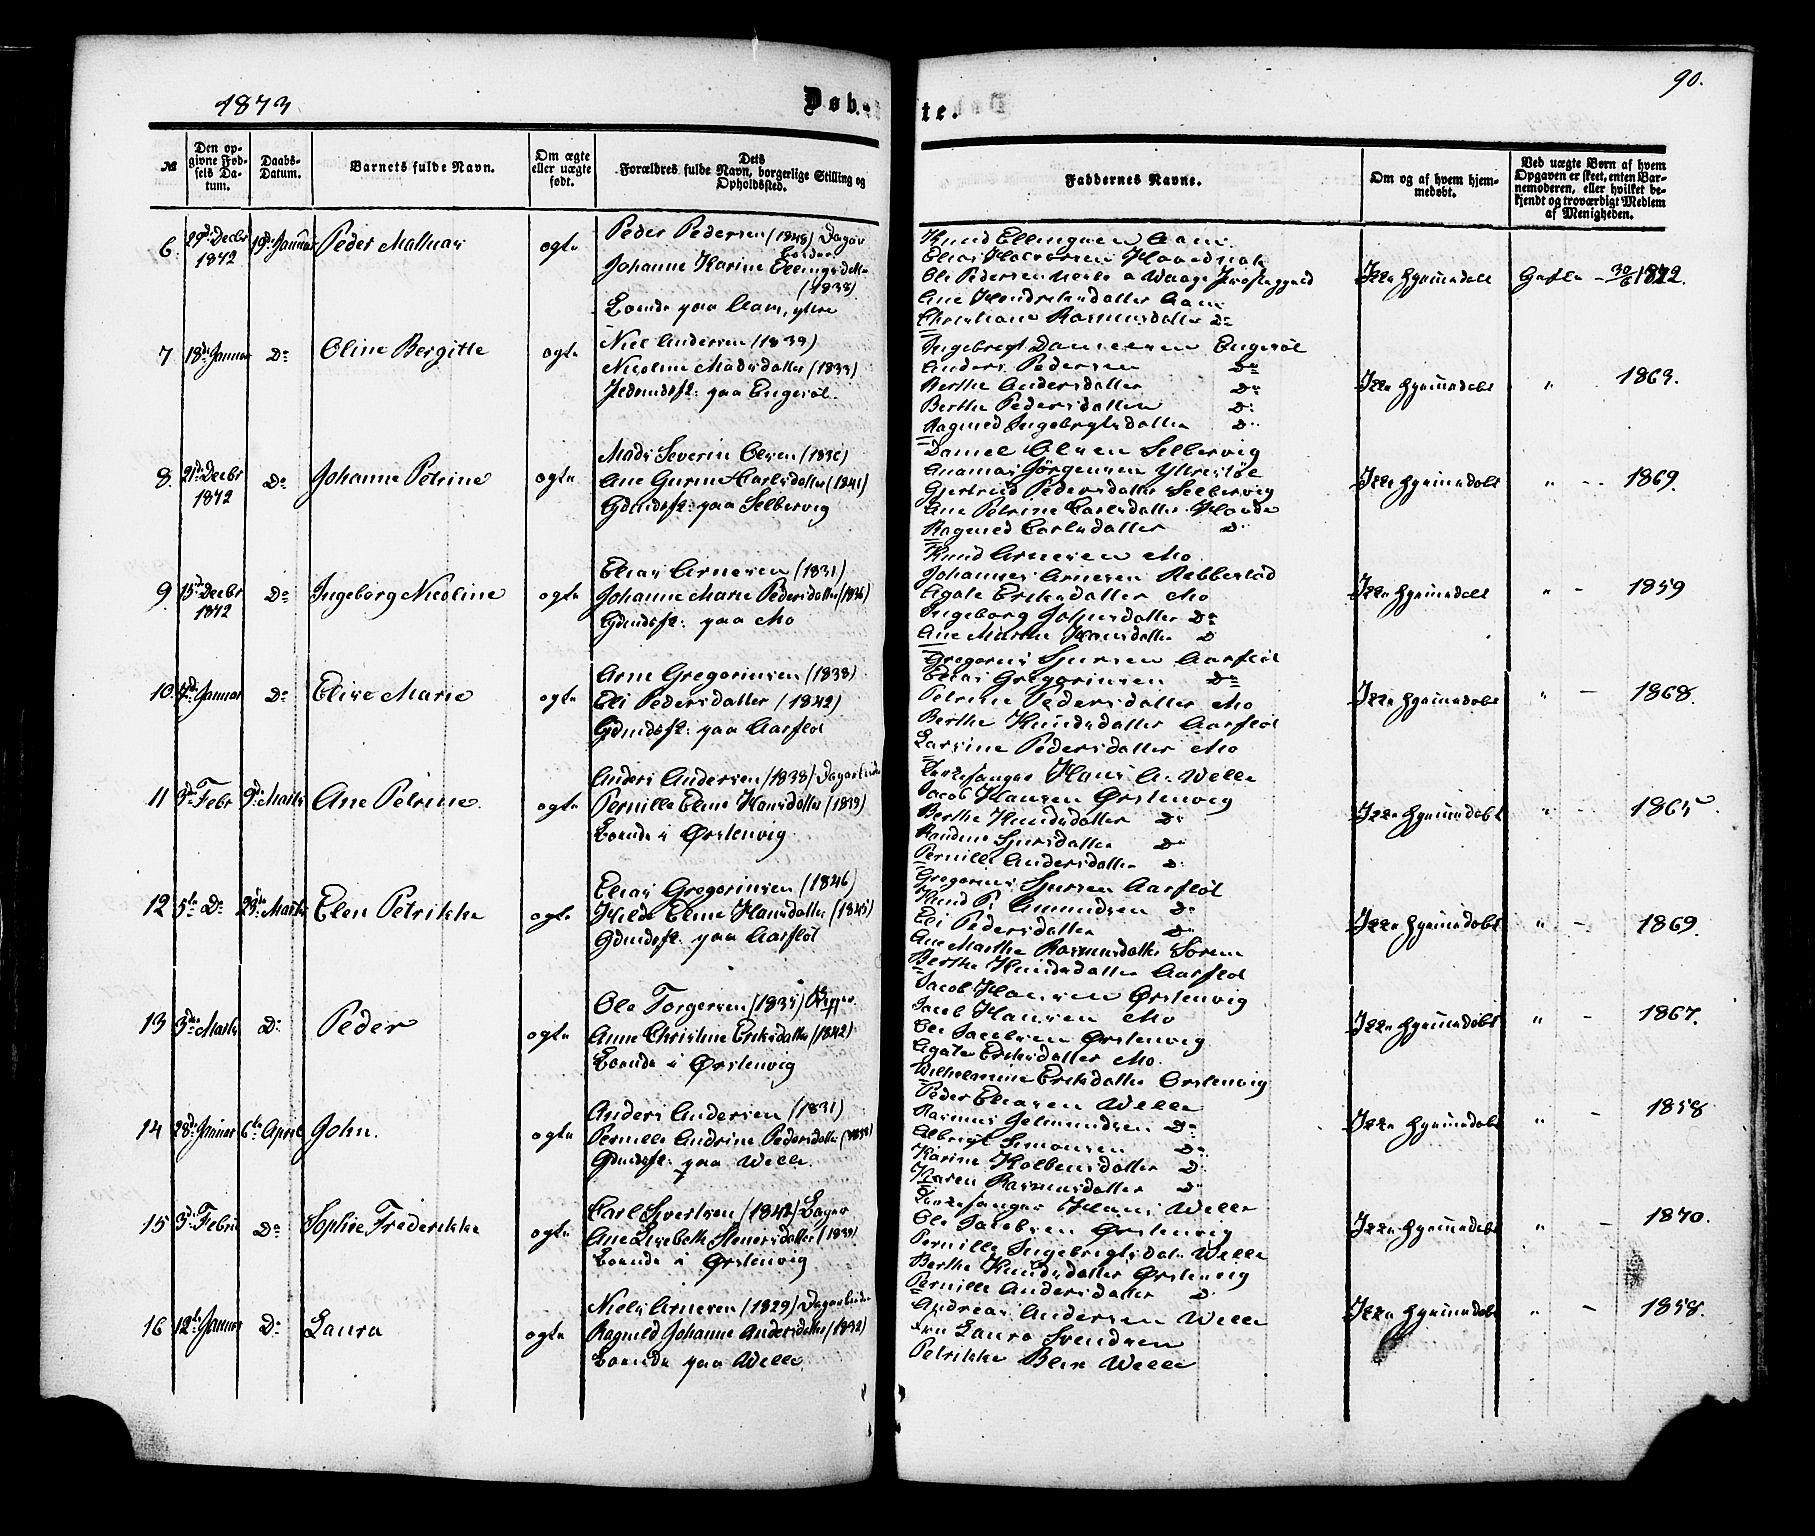 90.
1873
Døbte.
№
Den opgivne Fødsels Datum.
Daabs-Datum.
Barnets fulde Navn.
Om ægte eller uægte født.
Dets Forældres fulde Navn, borgerlige Stilling og Opholdssted.
Faddernes Navne.
Om og af hvem hjemmedøbt.
Ved uægte Børn af hvem Opgaven er skeet, enten Barnemoderen, eller hvilket bekjendt og troværdigt Medlem af Menigheden.
6. 29de Decbr 1872 19de Januar Peder ægte
Peder Pedersen (1848)
Johanne Karine Ellingsdatter (1838)
Boende paa Aam, ytre
Knud Ellingsen Aam
Ane Hendriksdatter Aam
Christiane Rasmusdatter Do
Ikke hjemmedøbt 1872.
7 18de Januar Do Oline Bergitte ægte
Niel Andersen (1839)
Nicoline Madsdatter (1833)
paa Engesøt.
Ingebregt Danielsen Engesøt
Anders Pedersen Do
Berthe Andersdatter Do
Berthe Pedersdatter D:
Ragnild Ingebrgtsdatter D:
Ikke hjemmedøbt " 1863.
8. 21de Decbr 1872 Do Johanne Petrine ægte
Mads Severin Olsen (1836)
Ane Gurine Carlsdatter (1841)
Gdmdsf: paa Selbervig
Daniel Olsen Selbervig
Jørgensen
Gjertrud Pedersdatter Selbervig
Ane Petrine Carlsdatter Hovde
Ragnild Carlsdatter D:
Ikke hjemmedøbt " - 1869.
9. 15de Decbr 1872 Do Ingeborg Nicoline ægte
Elias Arnesen (1831)
Johanne Marie Pedersdatter (1836)
Gdmdsf: paa Mo
Knud Arnesen Mo
Johannes Arnesen Rebbestad
Agate Eriksdatter Mo
Ingeborg Do
Ane Martine Hansdatter D
Ikke hjemmedøbt " - 1859
10. 4de Januar Do Elise Marie ægte
Arne Gregoriusen (1838)
Eli Pedersdatter (1842)
Gdmdsf: paa Aarfløt
Gregorius Sjursen Aarfløt
Elias Gregoriusen Do
Petrine Pedersdatter Mo
Berthe Knudsdatter Aarfløt
Larsine Pedersdatter Mo
Ikke hjemmedøbt " - 1868.
11 3de Febr 9de Marts Ane Petrine. ægte
Anders Andersen (1838) Dagarbeider
Pernille Eline Hansdatter (1839)
Boende i Ørstenvig.
Kirkesanger Hans A. Welle
Jacob Hansen Ørstenvig
Berthe Knudsdatter D:
Randine Sjursdatter D:
Pernille Andersdatter D:
Ikke hjemmedøbt " - 1865.
12 5te Do 23de Marts Elen Petrikke ægte
Elias Gregoriusen (1846)
Hilde Eline Hansdatter (1845)
Gdmdsf: paa Aarfløt
Gregorius Sjursen Aarfløt
Knud P. Amundsen D:
Eli Pedersdatter D:
Ane Marthe Rasmusdatter
Berthe Knudsdatter Aarfløt
Ikke hjemmedøbt " - 1869.
13 3de Marts D: Peder ægte
Ole Torgersen (1835)
Anne Christine Eriksdatter (1842)
Boende i Ørstenvig
Jacob Hansen Ørstenvig
Jacob Hansen Mo
Ole Jacobsen Ørstenvig
Agate Eriksdatter Mo.
Wilhelmine Eriksdatter Ørstenvig
Ikke hjemmedøbt " - 1867.
14 28de Januar 6te April John. ægte
Anders Andersen (1831)
Pernille Andrine Pedersdatter (1833)
Gdmdsf: paa Welle.
Peder Eliasen Welle
Rasmus Do
Albregt Simonsen Do
Karine Kolbensdatter D:
Karen Rasmusdatter D:
Ikke hjemmedøbt " - 1858
15 3de Febr Do Sophie Frederikke ægte
Carl Syvertsen (1842) Bager
Ane Lisebeth Stenersdatter (1839)
Boende i Ørstenvig
Kirkesanger Hans Welle
Ole Jacobsen Ørstenvig
Pernille Ingebrigtsdat. Welle
Berthe Knudsdatter Ørstenvig
Pernille Andersdatter D:
Ikke hjemmedøbt " - 1870.
16 12te Januar D: Laura ægte
Niels Arnesen (1829) Dagarbeider
Ragnild Johanne Andersdatter (1832)
Boende paa Welle.
Andreas Andersen Welle
Fru Laura Svendsen
Petrikke Welle
Ikke hjemmedøbt " - 1858.